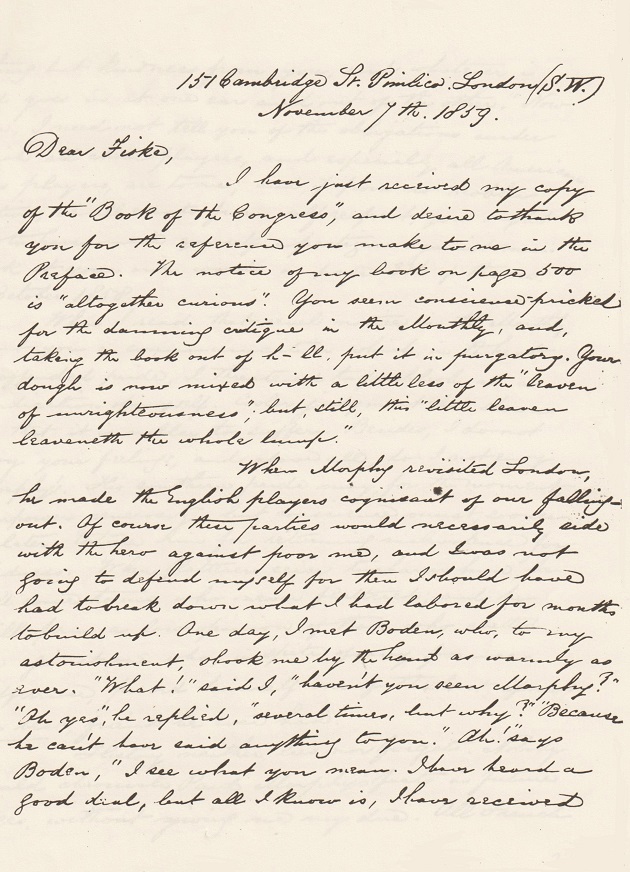 157 Cambridge St. Pimlico. London (S. W.)
November 7th. 1859.
Dear Fiske,
I have just received my copy
of the "Book of the Congress", and desire to thank
you for the reference you make to me in the
Preface. The notice of my book on page 500
is "altogether curious". You seem conscience-pricked
for the damning critique in the Monthly, and,
taking the book out of h-ll, put it in purgatory. Your
dough is now mixed with a little less of the "leaven
of unrighteousness"; but, still, this "little leaven
leaveneth the whole lump."
When Morphy revisited London,
he made the English players cognisant of our falling-
out. Of course these parties would necessarily side
with the hero against poor me, and I was not
going to defend myself for then I should have
had to break down what I had labored for months
to build up. One day, I met Boden, who, to my
astonishment, shook me by the hand as warmly as
ever. "What!" said I, "haven't you seen Morphy?"
"Oh yes", he replied, "several times, but why?" "Because
he can't have said anything to you." "Ah!" says
Boden, "I see what you mean. I have heard a
good deal, but all I know is, I have received